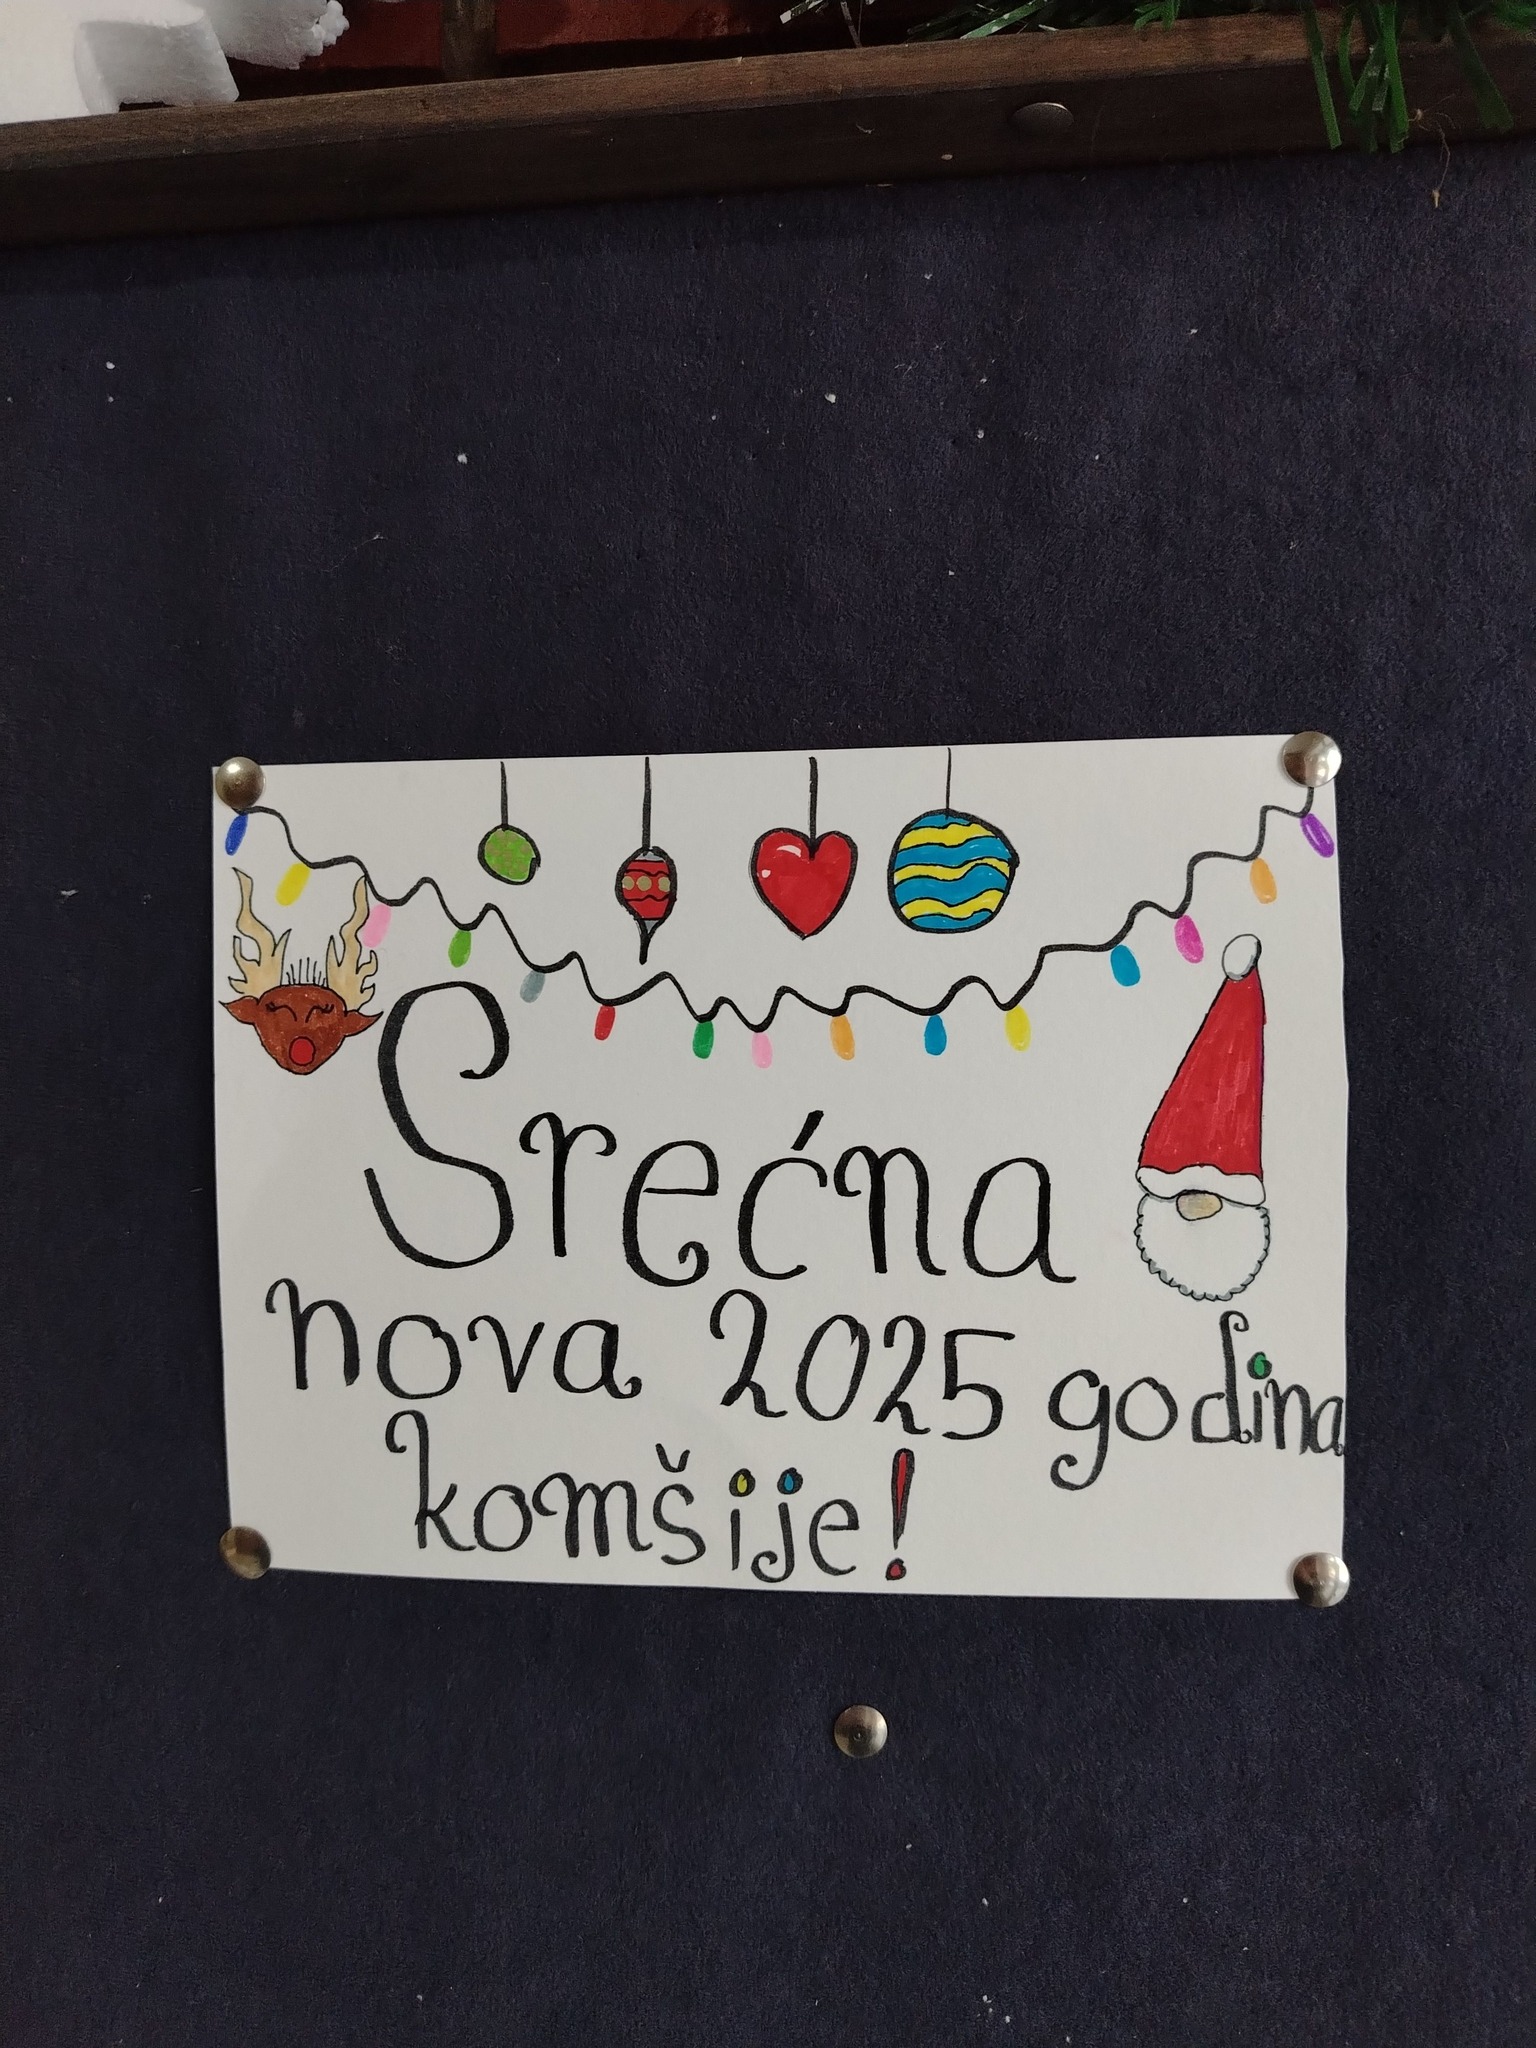 Srećna
nova 2025 godina
komšije!